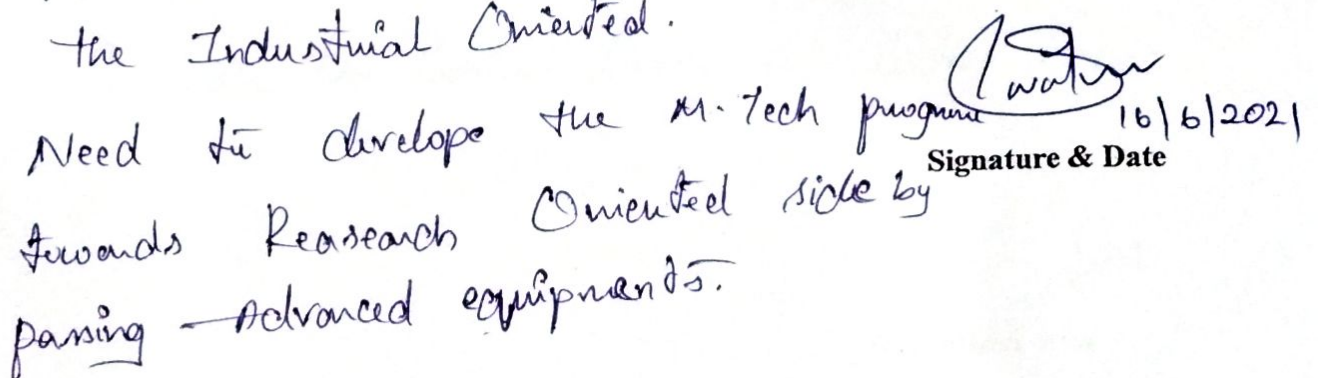 the Industrial Oriented.
Need to develope the M.Tech program
16/6/2021
Signature & Date
towards Reasearch Oriented side by
passing Advanced equipments.